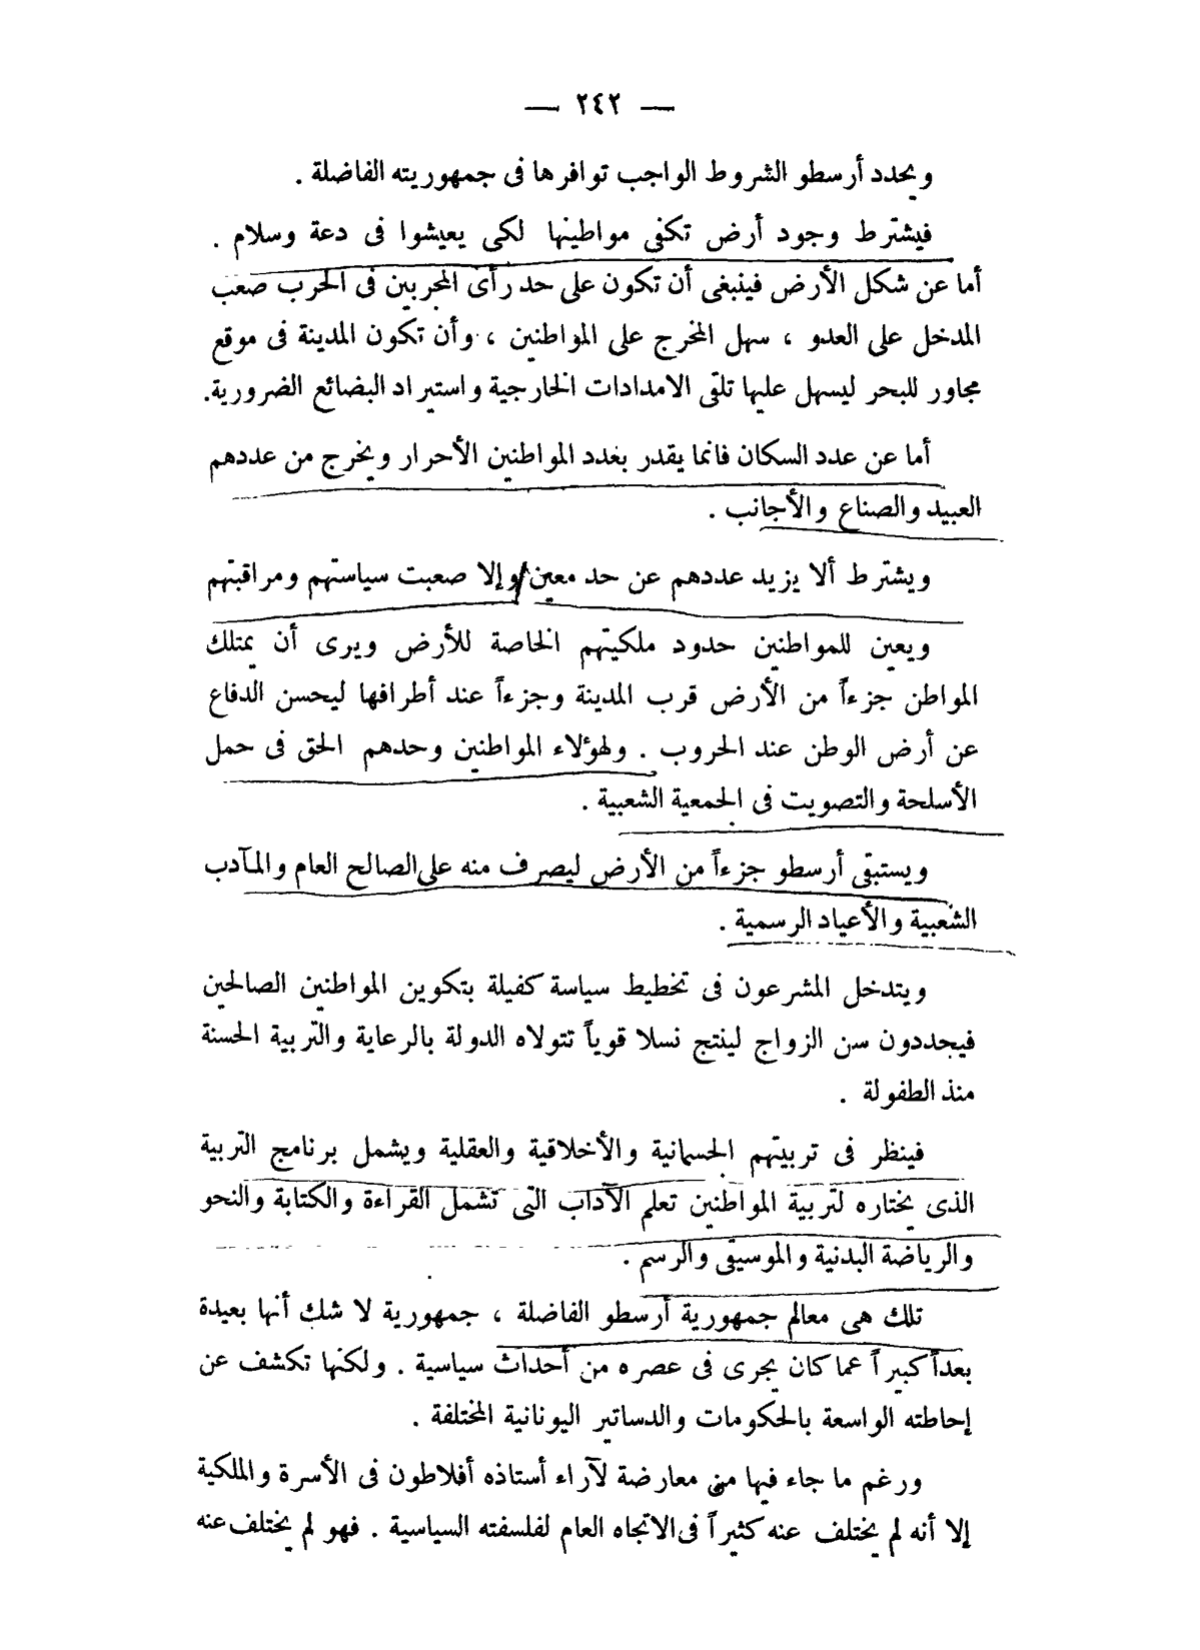 — ٢٤٢ —
ويحدد أرسطو الشروط الواجب توافرها فى جمهوريته الفاضلة .
فيشترط وجود أرض تكفى مواطنيها لكى يعيشوا فى دعة وسلام .
أما عن شكل الأرض فينبغى أن تكون على حد رأى المجربين فى الحرب صعب
المدخل على العدو ، سهل المخرج على المواطنين ، وأن تكون المدينة فى موقع
مجاور للبحر ليسهل عليها تلقى الامدادات الخارجية واستيراد البضائع الضرورية.
أما عن عدد السكان فانما يقدر بعدد المواطنين الأحرار ويخرج من عددهم
العبيد والصناع والأجانب .
ويشترط ألا يزيد عددهم عن حد معين وإلا صعبت سياستهم ومراقبتهم
ويعين للمواطنين حدود ملكيتهم الخاصة للأرض ويرى أن يمتلك
المواطن جزءاً من الأرض قرب المدينة وجزءاً عند أطرافها ليحسن الدفاع
عن أرض الوطن عند الحروب . ولهؤلاء المواطنين وحدهم الحق فى حمل
الأسلحة والتصويت فى الجمعية الشعبية .
ويستبقى أرسطو جزءاً من الأرض ليصرف منه على الصالح العام والمآدب
الشعبية والأعياد الرسمية .
ويتدخل المشرعون فى تخطيط سياسة كفيلة بتكوين المواطنين الصالحين
فيحددون سن الزواج لينتج نسلا قوياً تتولاه الدولة بالرعاية والتربية الحسنة
منذ الطفولة .
فينظر فى تربيتهم الجسمانية والأخلاقية والعقلية ويشمل برنامج التربية
الذى يختاره لتربية المواطنين تعلم الآداب التى تشمل القراءة والكتابة والنحو
والرياضة البدنية والموسيقى والرسم .
تلك هى معالم جمهورية أرسطو الفاضلة ، جمهورية لا شك أنها بعيدة
بعداً كبيراً عما كان يجرى فى عصره من أحداث سياسية . ولكنها تكشف عن
إحاطته الواسعة بالحكومات والدساتير اليونانية المختلفة .
ورغم ما جاء فيها من معارضة لآراء أستاذه أفلاطون فى الأسرة والملكية
إلا أنه لم يختلف عنه كثيراً فى الاتجاه العام لفلسفته السياسية . فهو لم يختلف عنه